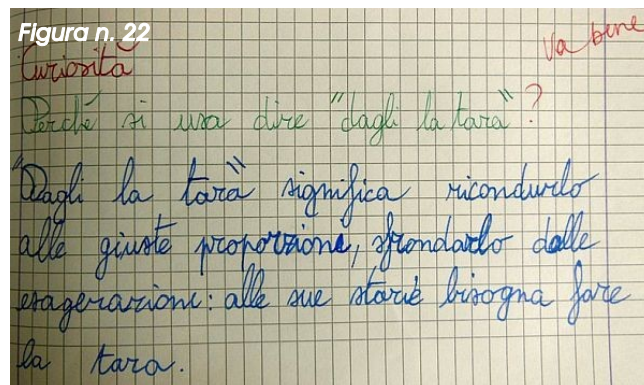 Figura n. 22
va bene
Curiosità
Perché si usa dire "dagli la tara"?
"Dagli la tara" significa ricondurlo
alle giuste proporzioni, sfrondarlo dalle
esagerazioni: alle sue storie bisogna fare
la tara.